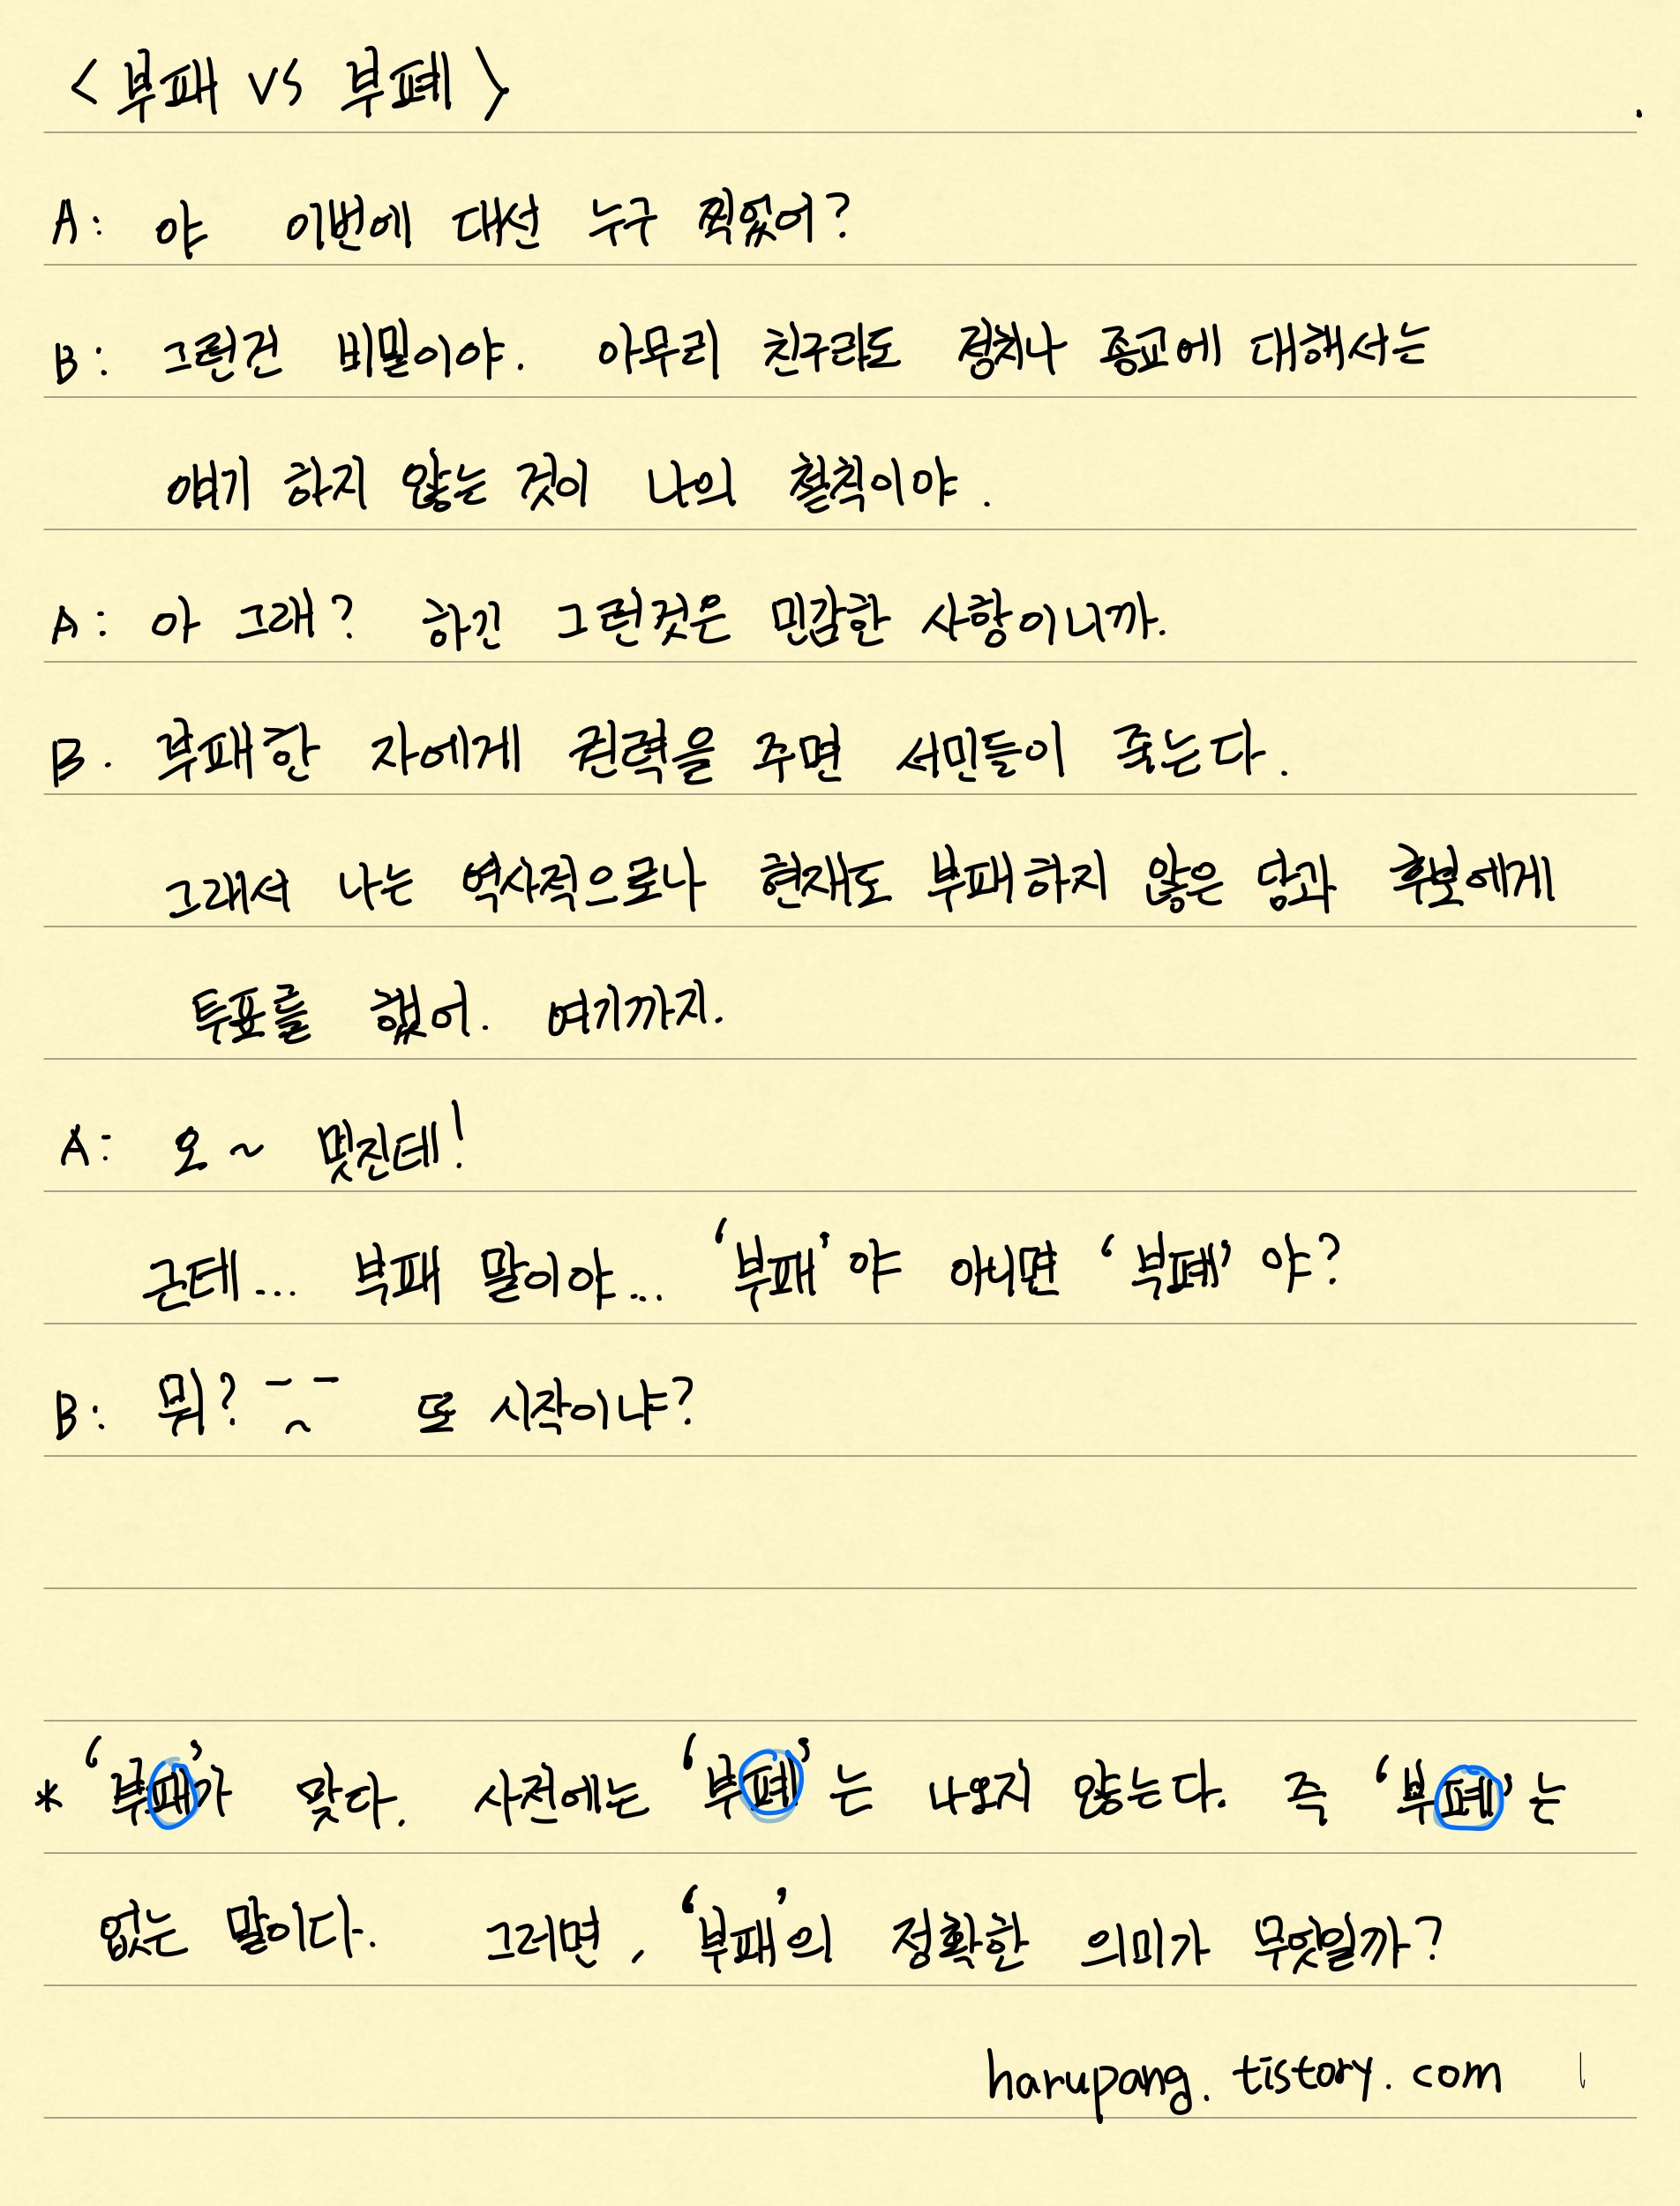 < 부패 vs 부폐 >
A: 야 이번에 대선 누구 찍었어?
B: 그런건 비밀이야. 아무리 친구라도 정치나 종교에 대해서는
얘기 하지 않는 것이 나의 철칙이야.
A: 아 그래? 하긴 그런것은 민감한 사항이니까.
B. 부패한 자에게 권력을 주면 서민들이 죽는다.
그래서 나는 역사적으로나 현재도 부패하지 않은 당과 후보에게
투표를 했어. 여기까지.
A: 오~ 멋진테!
근테... 부패 말이야... '부패'야 아니면 '부폐'야?
B: 뭐? 또 시작이냐?
* '부패'가 맞다. 사전에는 '부폐'는 나오지 않는다. 즉 '부폐'는
없는 말이다. 그러면, '부패'의 정확한 의미가 무엇일까?
harupang.tistory.com